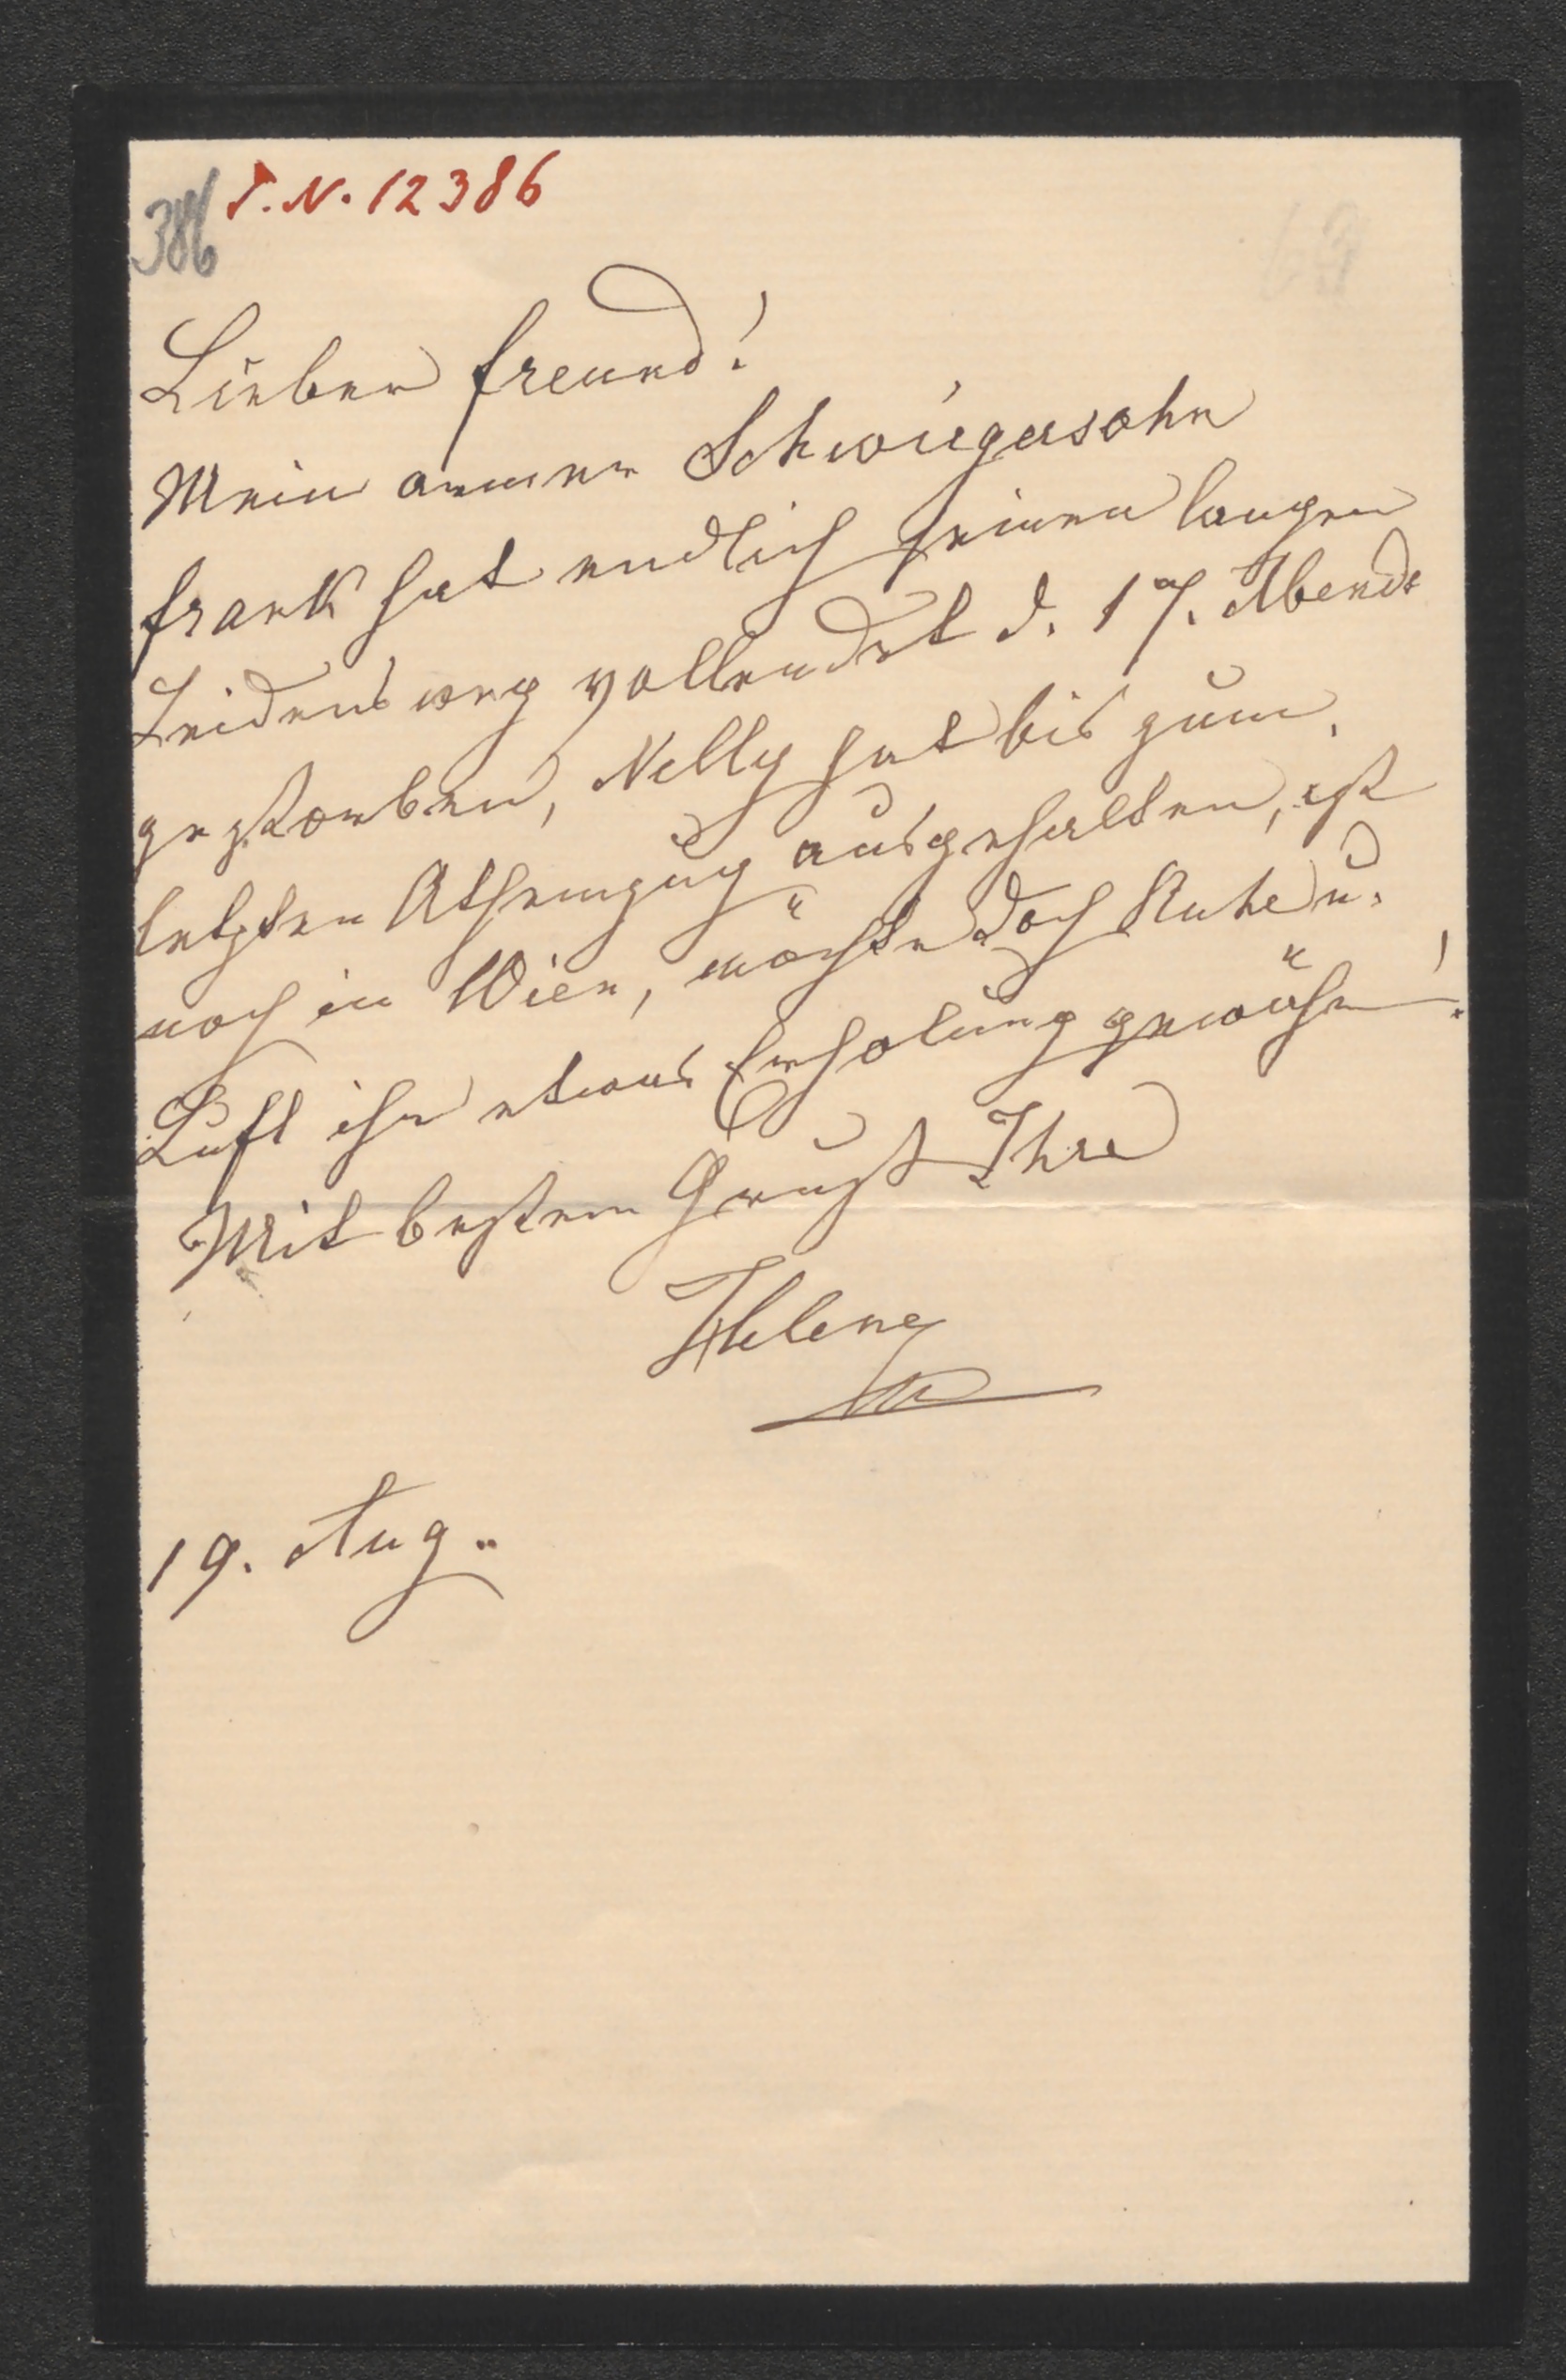 386 I.N. 12386
Lieber Freund!
Mein armer Schwiegersohn
Frank hat endlich seinen langen
Leidensweg vollendet d. 17. Abends
gestorben, Nelly hat bis zum
letzten Athemzug ausgehalten, ist
noch in Wien, möchte doch Ruhe u.
Luft ihr etwas Erholung gewähren!
Mit bestem Gruß Ihre
Helene
19. Aug.